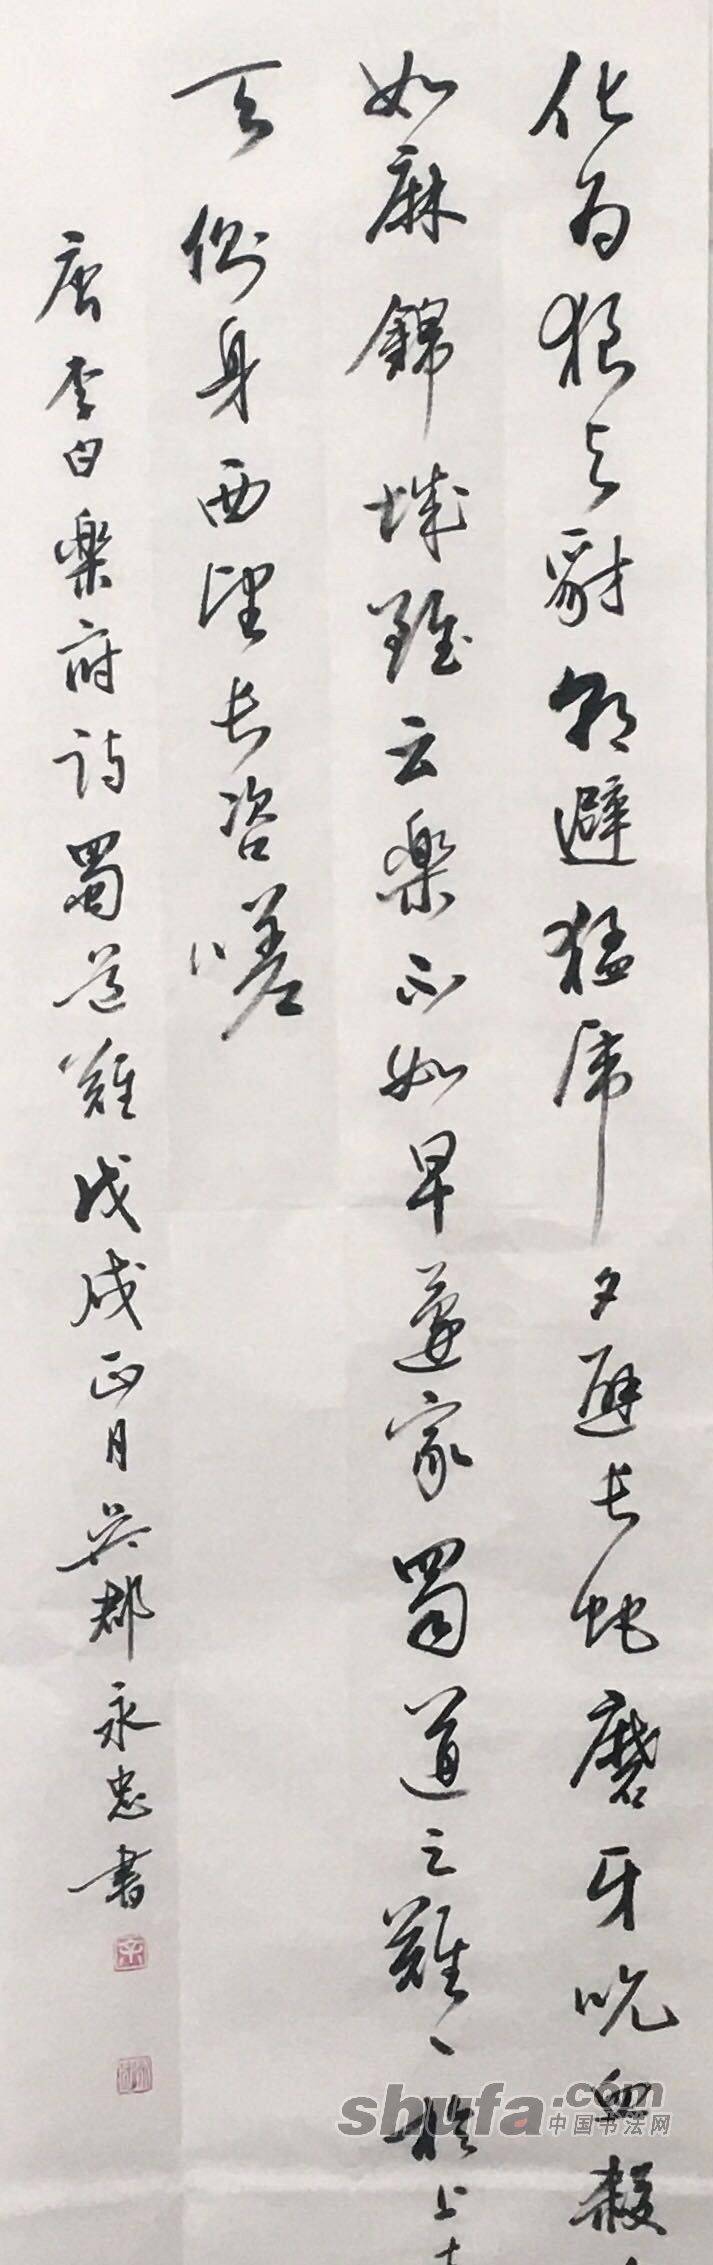 化为狼与豺朝避猛虎夕避长蛇磨牙吮血殺
如麻錦城雖云楽不如早還家蜀道之難〻於上青
天側身西望长咨嗟
唐李白楽府詩蜀道難戊戌正月吴郡永忠書
shufa.com
中国书法网